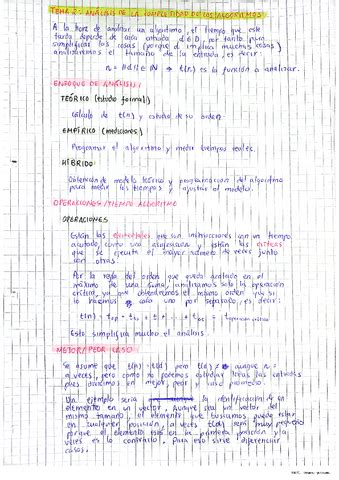 TEMA 2: ANÁLISIS DE LA COMPLEJIDAD DE LOS ALGORITMOS
A la hora de analizar un algoritmo, el tiempo que este
tarda depende de cada entrada d ∈ D, por tanto para
simplificar las cosas (porque d implica muchas cosas)
analizaremos el tamaño de la entrada, es decir:
n = ||d|| ∈ N ⇒ t(n) es la función a analizar.
ENFOQUE DE ANÁLISIS:
TEÓRICO (estudio formal)
Cálculo de t(n) y estudio de su orden
EMPÍRICO (mediciones)
Programar el algoritmo y medir tiempos reales.
HÍBRIDO
Obtención de modelo teórico y programación del algoritmo
para medir los tiempos y ajustar el modelo.
OPERACIONES/TIEMPO ALGORITMO
OPERACIONES
Están las elementales que son instrucciones con un tiempo
acotado, como una asignación y están las críticas
que se ejecuta el mayor número de veces junto
con otras.
Por la regla del orden que queda acotado en el
máximo de una suma, analizamos solo la operación
crítica, ya que obtendremos el mismo orden que si
lo hacemos solo uno por separado, es decir:
t(n) =
Esto simplifica mucho el análisis.
MEJOR/PEOR CASO
Se asume que t(n) = t(d) pero aunque n =
a veces, pero como no podemos estudiar todas las entradas
pues hacemos en mejor, peor y caso promedio.
Un ejemplo sería la identificación de un
elemento en un vector. Aunque sea un vector del
mismo tamaño, el elemento que buscamos puede estar
en cualquier posición, a veces t(d) será muy pequeño
porque el elemento está en la primera posición y a
veces es lo contrario. Para eso sirve diferenciar
casos.